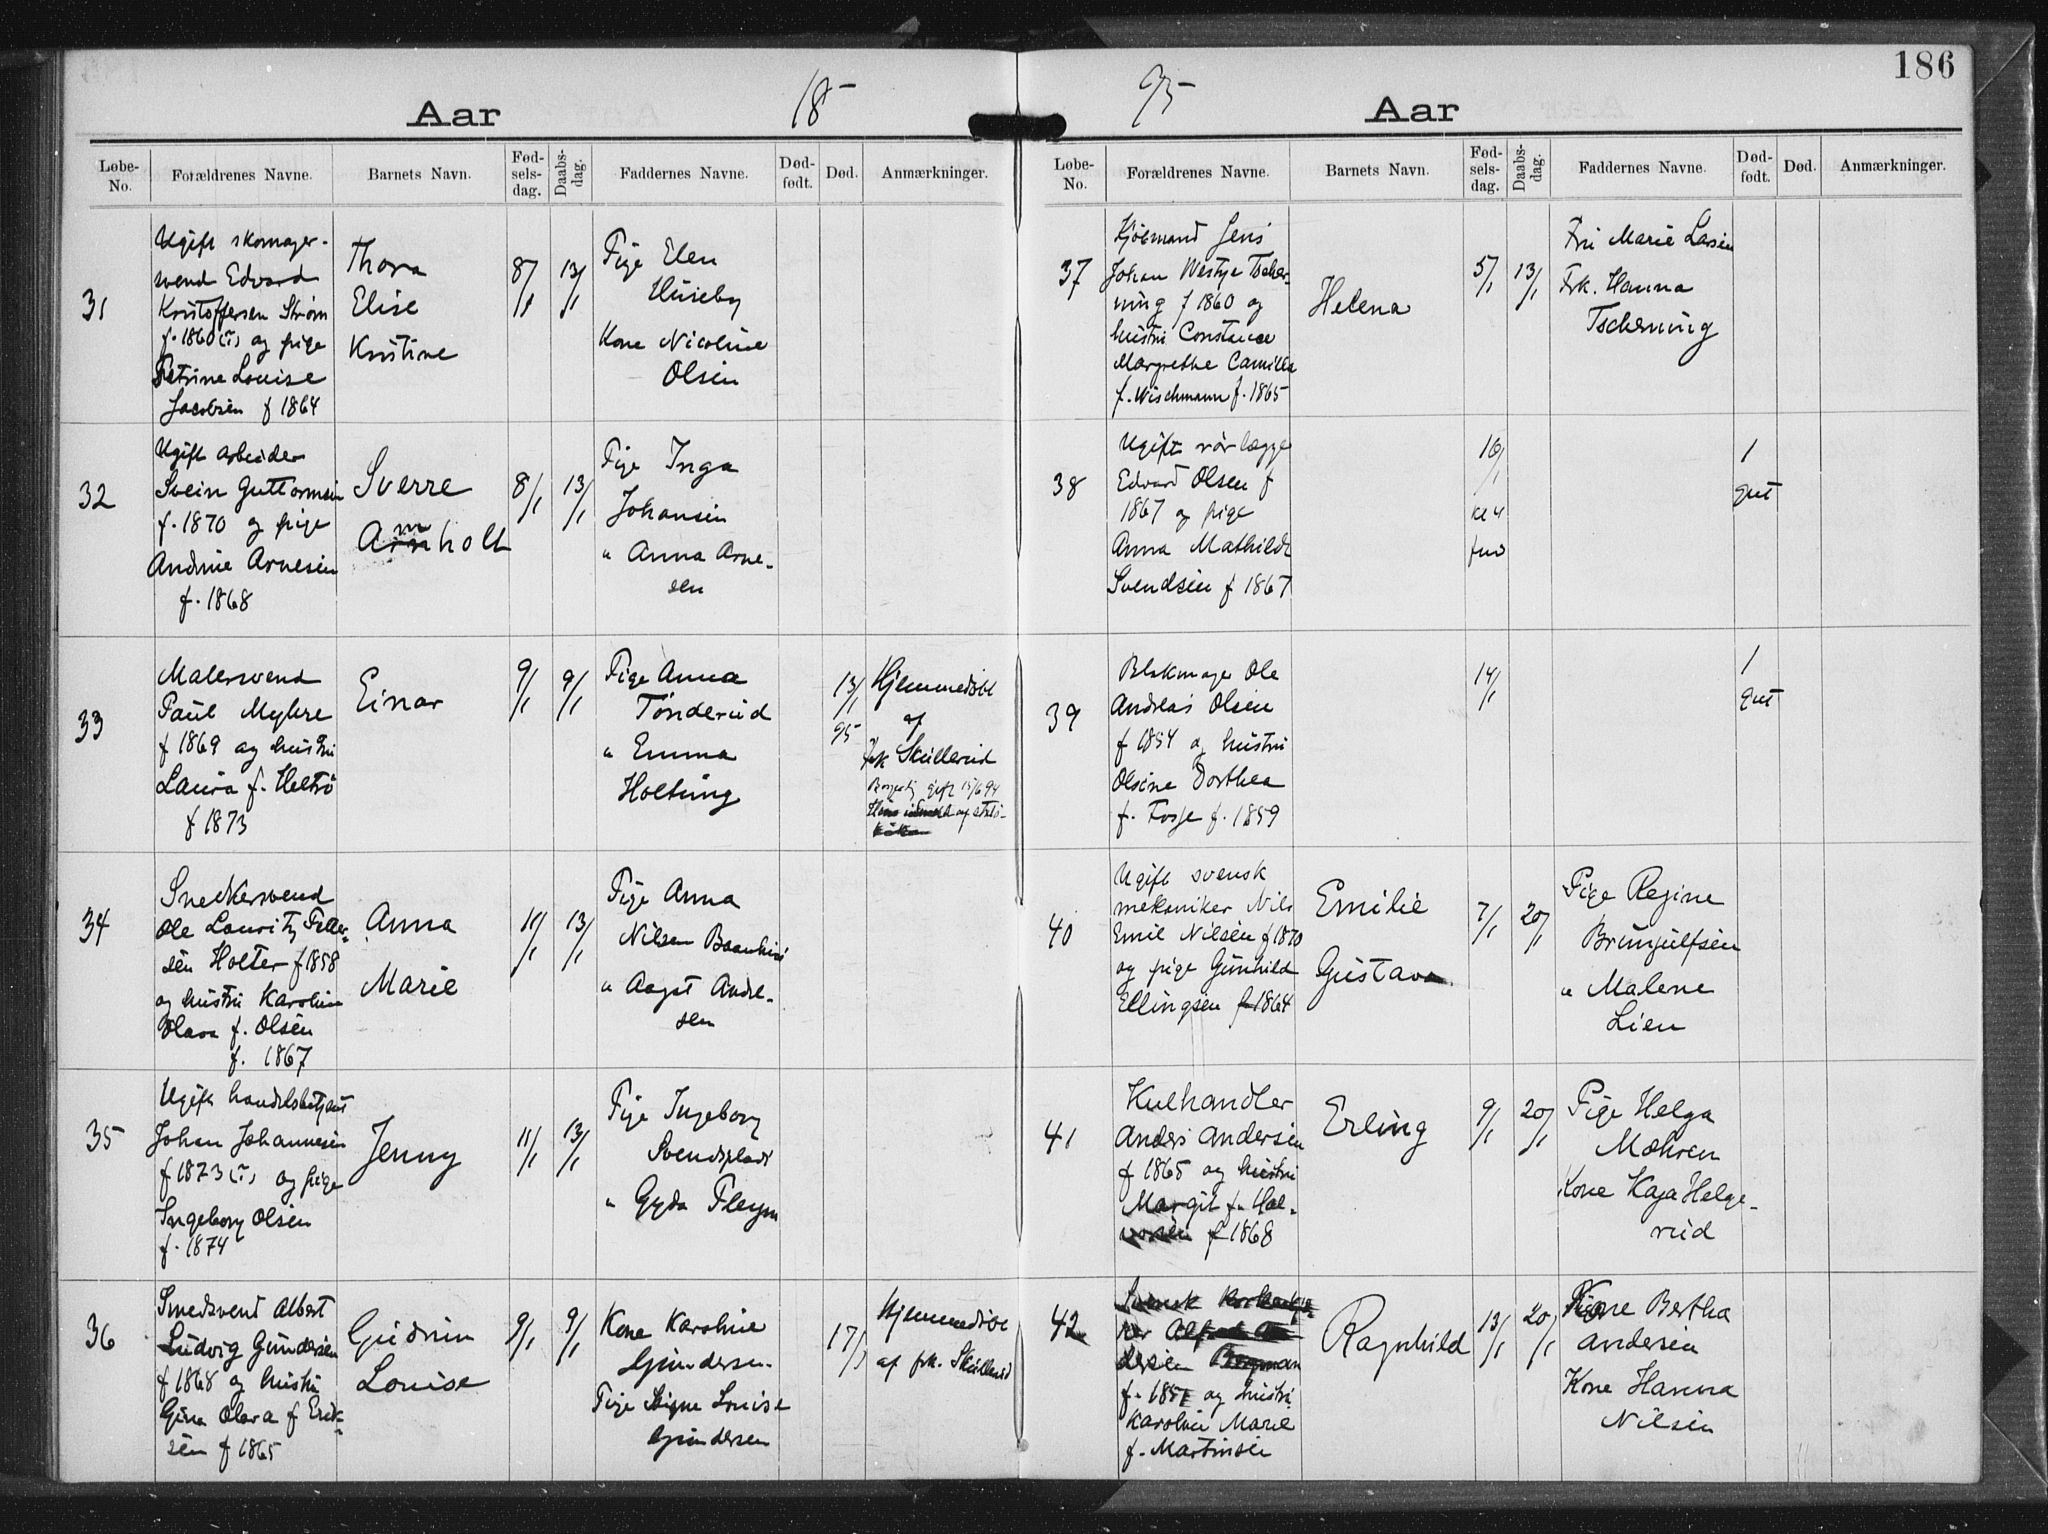 186
Aar 18-
95- Aar
Løbe-No. Forældrenes Navne. Barnets Navn. Fød-sels-dag. Daabs-dag. Faddernes Navne. Død-født. Død. Anmærkninger.
31
Ugift skomager-
svend Edvard
Kristoffersen Strøm
f. 1860 (?) og pige
Petrine Louise
Jacobsen f 1864
Thora
Elise
Kristine
8/1
13/1
Pige Elen
Huseby
Kone Nicoline
Olsen
32
Ugift arbeider
Svein Guttormsen
f. 1870 og pige
Andrine Arnesen
f. 1868
Sverre
Arnholt
8/1
13/1
Pige Inga
Johansen
" Anna Arne-
sen
33
Malersvend
Paul Myhre
f 1869 og hustru
Laura f.
f 1873
Einar
9/1
9/1
Pige Anna
Tønderud
" Emma
Holtung
13/1
95
Hjemmedøbt
af
frk Skullerud
Borgerlig gift 15/6 94
34
Snedkersvend
Ole Lauritz Peder-
sen Holter f 1858
og hustru Karoline
Olava f. Olsen
f. 1867
Anna
Marie
11/1
13/1
Pige Anna
Nilsen
" Aagot Andr-
sen
35
Ugift handelsbetjent
Johan Johannesen
f 1873 (?) og pige
Ingeborg Olsen
f. 1874
Jenny
11/1
13/1
Pige Ingeborg
Svendsplads
" Gyda
36
Smedsvend Albert
Ludvig Gundersen
f 1868 og hustru
Gina Olava f Erik-
sen f 1865
Gudrun
Louise
9/1
9/1
Kone Karoline
Gundersen
Pige Signe Louise
Gundersen
17/1
Hjemmedøbt
af frk. Skullerud
Løbe-No. Forældrenes Navne. Barnets Navn. Fød-sels-dag. Daabs-dag. Faddernes Navne. Død-født. Død. Anmærkninger.
37
Kjøbmand Jens
Johan Westye Tscher-
ning f 1860 og
hustru Constance
Margrethe Camilla
f. Wischmann f. 1865
Helena
5/1
13/1
Fru Marie Larsen
Frk. Hanna
Tscherning
38
Ugift rørlægger
Edvard Olsen f
1867 og pige
Anna Mathilde
Svendsen f 1867
10/1
kl 4
fm
1
gut
39
Blikmager Ole
Andreas Olsen
f 1854 og hustru
Olsine Dorthea
f. Fosse f. 1859
14/1
1
gut
40
Ugift svensk
mekaniker Nils
Emil Nilsen f 1870
og pige Gunhild
Ellingsen f 1864
Emilie
Gustava
7/1
20/1
Pige Regine
Brunjulfsen
" Malene
Lien
41
Kulhandler
Anders Andersen
f 1865 og hustru
Margit f. Hal-
vorsen f 1868
Erling
9/1
20/1
Pige Helga
Mohren
Kone Kaja Helge-
rud
42
Svensk
Alfred An
dersen Bergman
f. 1851 og hustru
Karoline Marie
f. Martinsen
Ragnhild
13/1
20/1
Kone Bertha
Andersen
Kone Hanna
Nilsen